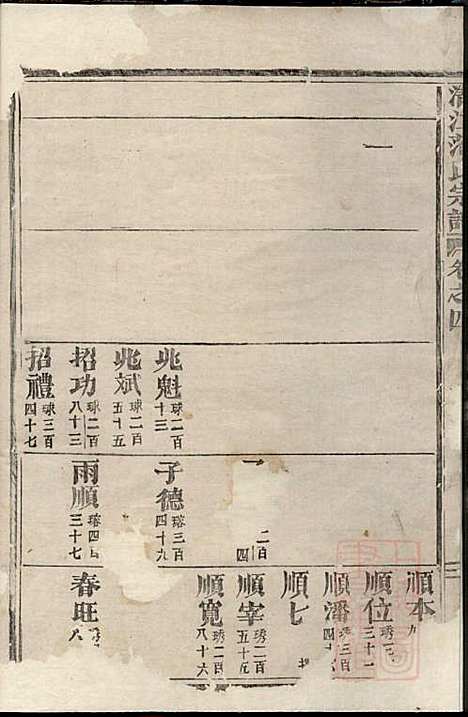 宗譜 卷之四
三
一
兆魁 球二百十三
兆斌 球二百五十五
招功 球二百八十三
招禮 球三百四十七
一 二百四
子德 瑢三百四十九
雨順 瑢四百三十七
順本
順位 琇三百三十一
順潘 琇三百四十
順七
順宰 琇二百五十五
順寬 琇二百八十六
春旺